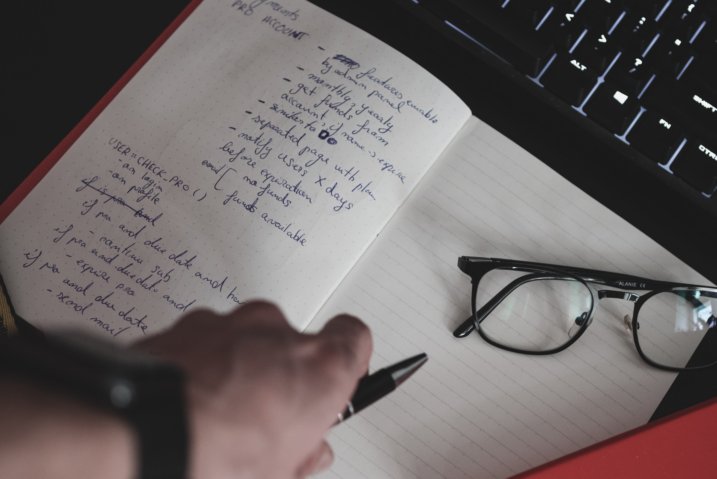 PRO ACCOUNT
- features enable
by admin panel
- monthly; yearly
- get funds from
account; if name → expire
- similar to
- separated page with plan
- notify users X days
before expiration
and [ no funds
funds available
USER::CHECK_PRO()
- on login
- on profile
if pro and due date and
- continue sub
if pro and due date and
- expire pro
if pro and due date
- send mail
ALANIE CE
ALT
FN
SHIFT
CTRL